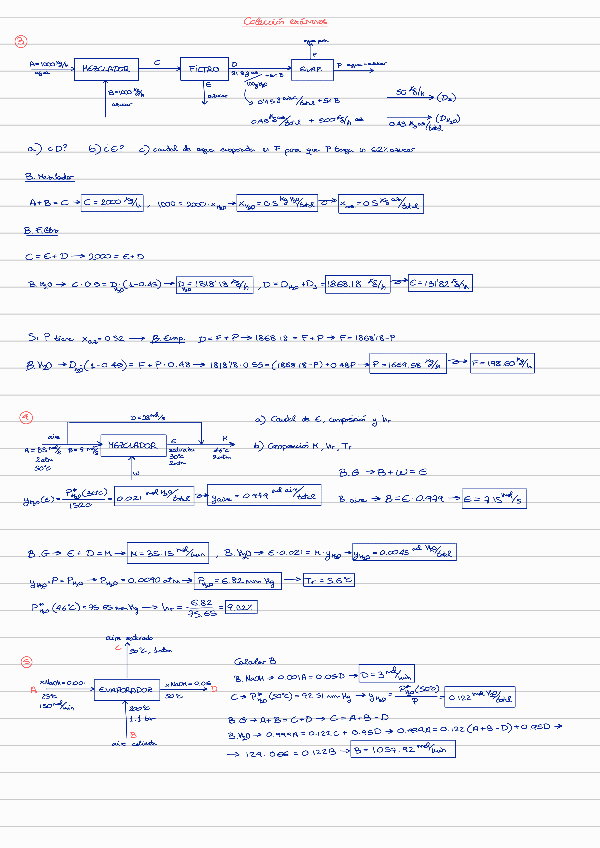 Colección exámenes
3
agua pura
F
A=1000 kg/h
agua
MEZCLADOR
C
FILTRO
D
EVAP.
P agua-azúcar
B=1000 kg/h
azúcar
E
azúcar
50 kg/h (Ds)
a) ¿D? b) ¿E? c) caudal de agua evaporada en F para que P tenga un 52% azúcar
B. Mezclador
A+B=C → C=2000 kg/h, 1000=2000·xH2O → xH2O=0.5 kg H2O/total → xaz=0.5 kg az/total
B. Filtro
C=E+D → 2000=E+D
B. H2O → C·0.5=D H2O(1-0.45) → D H2O=1818'18 kg/h, D=D H2O+Ds=1868.18 kg/h → E=131'82 kg/h
Si P tiene xaz=0.52 → B. Evap. D=F+P → 1868.18=F+P → F=1868'18-P
B. H2O → D H2O·(1-0.45)=F+P·0.48 → 1818'18·0.55=(1868.18-P)+0.48P → P=1669.58 kg/h → F=198.60 kg/h
4
D=28 mol/s
aire
A=8.5 mol/s
2atm
50°C
B=7 mol/s
MEZCLADOR
E
saturado
30°C
2atm
M
46°C
2atm
W
a) Caudal de E, composición y hr
b) Composición M, hr, Tr
B.G → B+W=E
yH2O(E)=P*H2O(30°C)/1520=0.021 mol H2O/total → yaire=0.979 mol aire/total
B. aire → B=E·0.979 → E=7.15 mol/s
B.G → E+D=M → M=35.15 mol/min, B. H2O → E·0.021=M·yH2O → yH2O=0.0045 mol H2O/total
yH2O·P=PH2O → PH2O=0.0090 atm → PH2O=6.82 mm Hg → Tr=5.6°C
P*H2O(46°C)=75.65 mmHg → hr=6.82/75.65=9.02%
5
aire saturado
C
50°C, 1atm
Calcular B
A
xNaOH=0.001
25°C
150 mol/min
EVAPORADOR
xNaOH=0.05
50°C
D
200°C
1.1 bar
B
aire caliente
B. NaOH → 0.001A=0.05D → D=3 mol/min
C → P*H2O(50°C)=92.51 mm Hg → yH2O=P*H2O(50°C)/P=0.122 mol H2O/total
B.G → A+B=C+D → C=A+B-D
B. H2O → 0.999A=0.122C+0.95D → 0.999A=0.122(A+B-D)+0.95D →
→ 129.066=0.122B → B=1057.92 mol/min